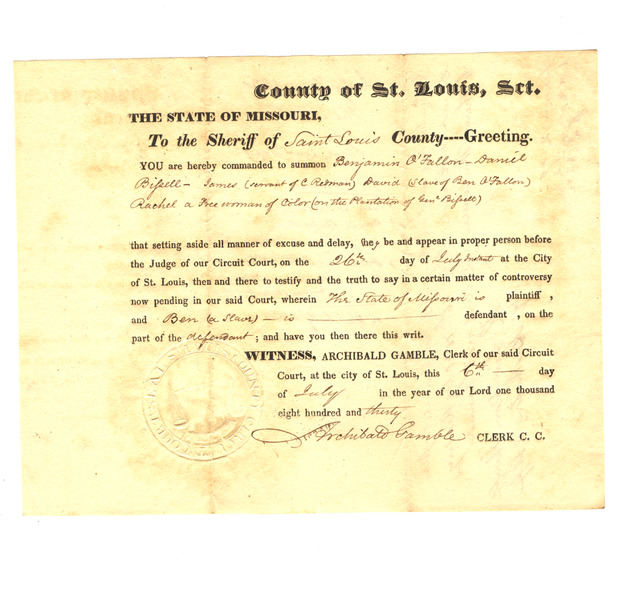 County of St. Louis, Sct.
THE STATE OF MISSOURI,
To the Sheriff of Saint Louis County----Greeting.
YOU are hereby commanded to summon Benjamin O'Fallon - Daniel
Bissell - James (servant of C Redman) David (Slave of Ben O'Fallon)
Rachel a Free woman of Color (on the Plantation of Genl Bissell)
that setting aside all manner of excuse and delay, they be and appear in proper person before
the Judge of our Circuit Court, on the 26th day of July Instant at the City
of St. Louis, then and there to testify and the truth to say in a certain matter of controversy
now pending in our said Court, wherein The State of Missouri is plaintiff ,
and Ben (a Slave) - is defendant , on the
part of the defendant ; and have you then there this writ.
WITNESS, ARCHIBALD GAMBLE, Clerk of our said Circuit
Court, at the city of St. Louis, this 6th day
of July in the year of our Lord one thousand
eight hundred and thirty
Archibald Gamble CLERK C. C.